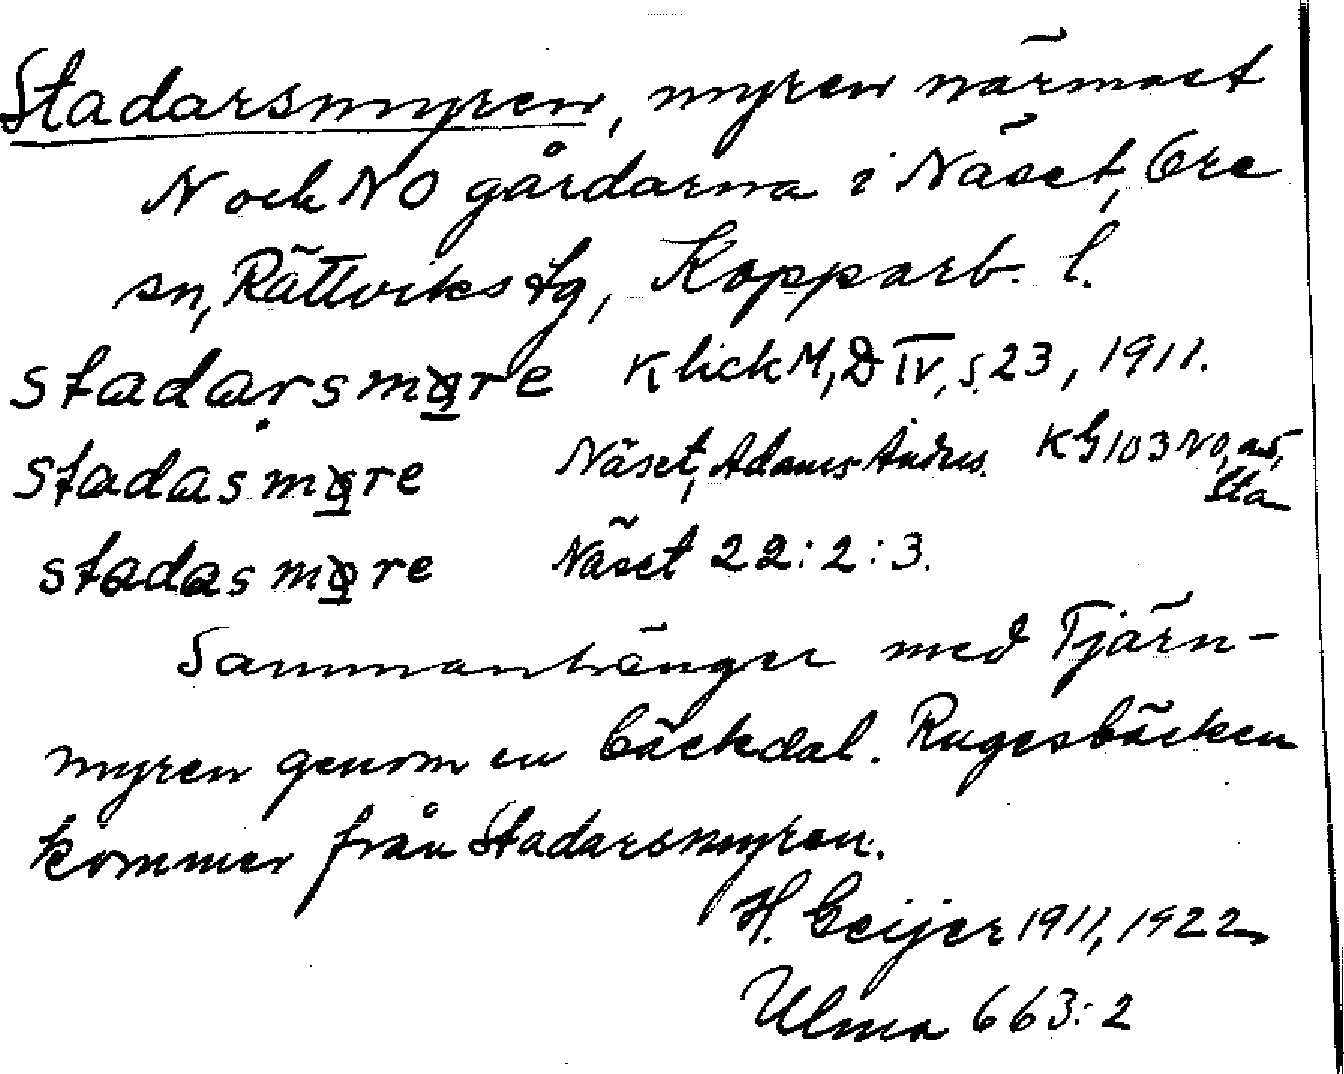 Stadarsmyren, myren närmast
N och NO gårdarna i Näset, Ore
sn, Rättviks tg, Kopparb. l.
stadarsmyre Klick M, D IV, s. 23, 1911.
stadasmyre Näset, Adams Anders. KG 103 NO,
stadasmyre Näset 22:2:3.
Sammanhänger med Tjärn-
myren genom en bäckdal. Rugesbäcken
kommer från Stadarsmyren.
H. Geijer 1911, 1922
Ulma 663:2